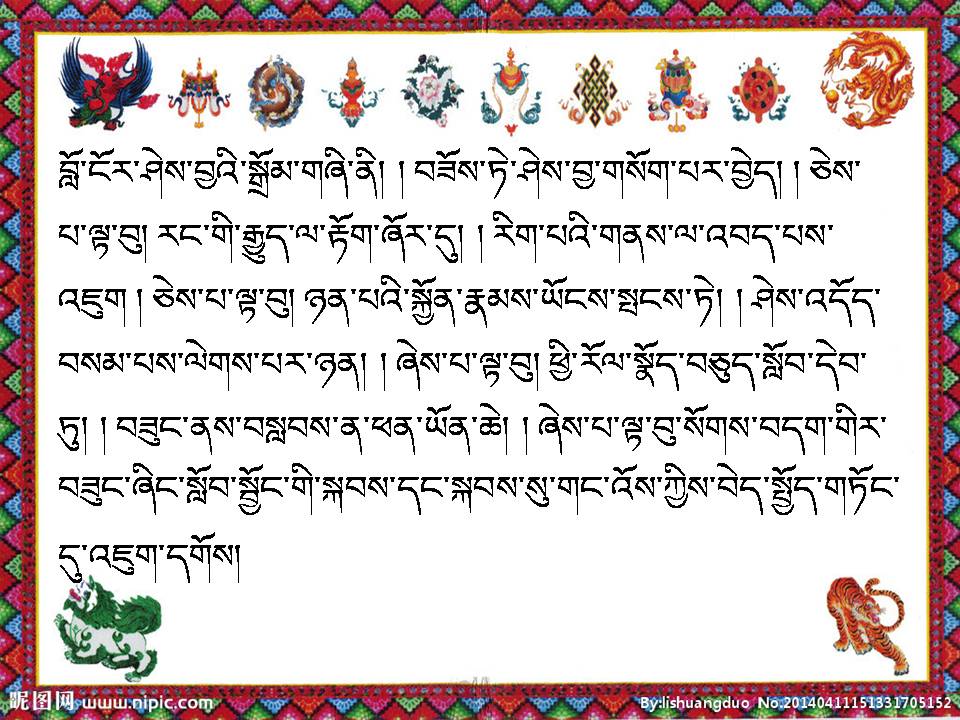 བློ་ངོར་ཤེས་བྱའི་སྒྲོམ་གཞི་ནི། །བཟོས་ཏེ་ཤེས་བྱ་གསོག་པར་བྱེད། །ཅེས་
པ་ལྟ་བུ། རང་གི་རྒྱུད་ལ་རྟོག་ཞོར་དུ། །རིག་པའི་གནས་ལ་འབད་པས་
འཇུག །ཅེས་པ་ལྟ་བུ། ཉན་པའི་སྐྱོན་རྣམས་ཡོངས་སྤངས་ཏེ། །ཤེས་འདོད་
བསམ་པས་ལེགས་པར་ཉན། །ཞེས་པ་ལྟ་བུ། ཕྱི་རོལ་སྣོད་བཅུད་སློབ་དེབ་
ཏུ། །བཟུང་ནས་བསླབས་ན་ཕན་ཡོན་ཆེ། །ཞེས་པ་ལྟ་བུ་སོགས་བདག་གིར་
བཟུང་ཞིང་སློབ་སྦྱོང་གི་སྐབས་དང་སྐབས་སུ་གང་འོས་ཀྱིས་བེད་སྤྱོད་གཏོང་
དུ་འཇུག་དགོས།
昵图网 www.nipic.com
By:lishuangduo No.20140411151331705152